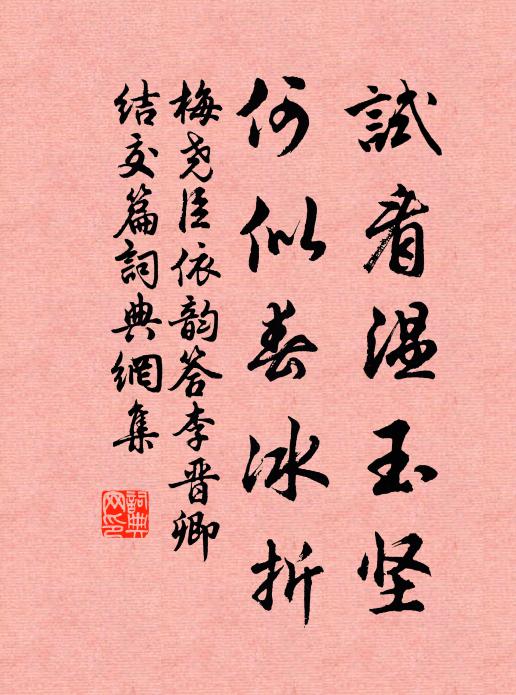 試看温玉坚
何似春冰折
梅尧臣依韵答李晋卿
结交篇詞典網集
詞典
网印